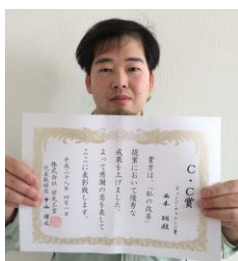 C・C賞
殿
貴方は、「私の改善」
提案において優秀な
成果を上げました。
よって感謝の意を表して
ここに表彰致します。
平成二十八年四月一日
株式会社
代表取締役